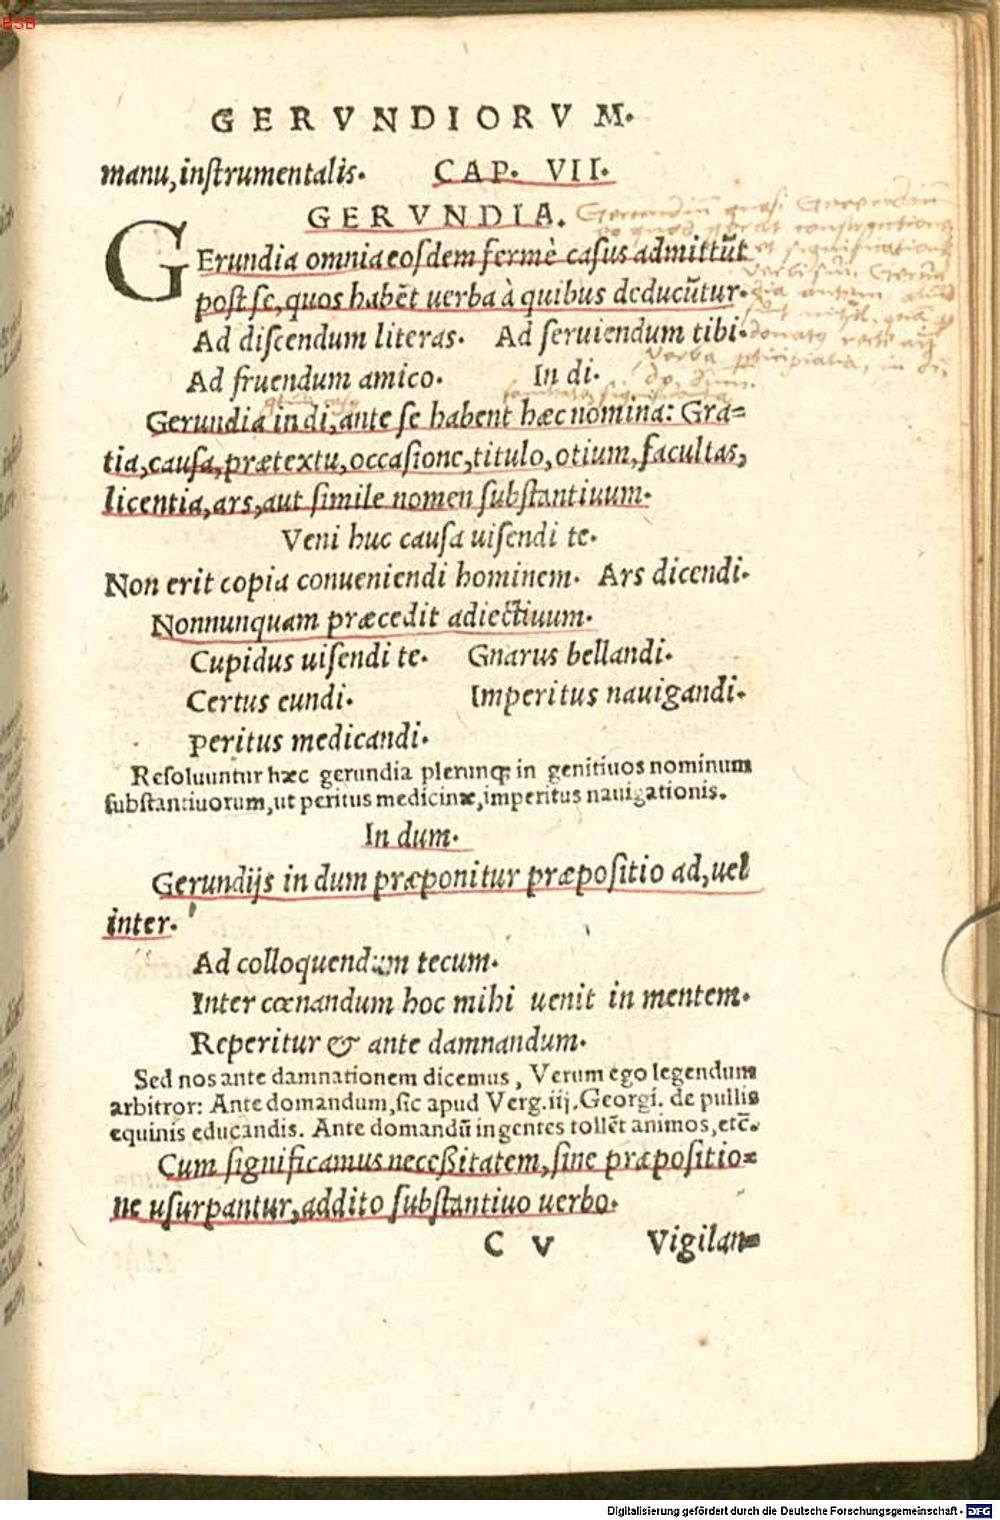 BSB
GERVNDIORVM.
manu, inſtrumentalis. CAP. VII.
GERVNDIA.
GErundia omnia eoſdem fermè caſus admittūt
poſt ſe, quos habēt uerba à quibus deducūtur.
Ad diſcendum literas. Ad ſeruiendum tibi.
Ad fruendum amico. In di.
Gerundia in di, ante ſe habent hæc nomina: Gra=
tia, cauſa, prætextu, occaſione, titulo, otium, facultas,
licentia, ars, aut ſimile nomen ſubſtantiuum.
Veni huc cauſa uiſendi te.
Non erit copia conueniendi hominem. Ars dicendi.
Nonnunquam præcedit adiectiuum.
Cupidus uiſendi te. Gnarus bellandi.
Certus eundi. Imperitus nauigandi.
peritus medicandi.
Reſoluuntur hæc gerundia plerunqꝫ in genitiuos nominum
ſubſtantiuorum, ut peritus medicinæ, imperitus nauigationis.
In dum.
Gerundijs in dum præponitur præpoſitio ad, uel
inter.
Ad colloquendum tecum.
Inter cœnandum hoc mihi uenit in mentem.
Reperitur & ante damnandum.
Sed nos ante damnationem dicemus, Verum ego legendum
arbitror: Ante domandum, ſic apud Verg. iij. Georgi. de pullis
equinis educandis. Ante domandū ingentes tollēt animos, etc̄.
Cum ſignificamus neceßitatem, ſine præpoſitio=
ne uſurpantur, addito ſubſtantiuo uerbo.
C v Vigilan=
Gerundiū quaſi
verbi
donatus recte ait
verba participialia, in di,
do, dum.
Digitalisierung gefördert durch die Deutsche Forschungsgemeinschaft - DFG